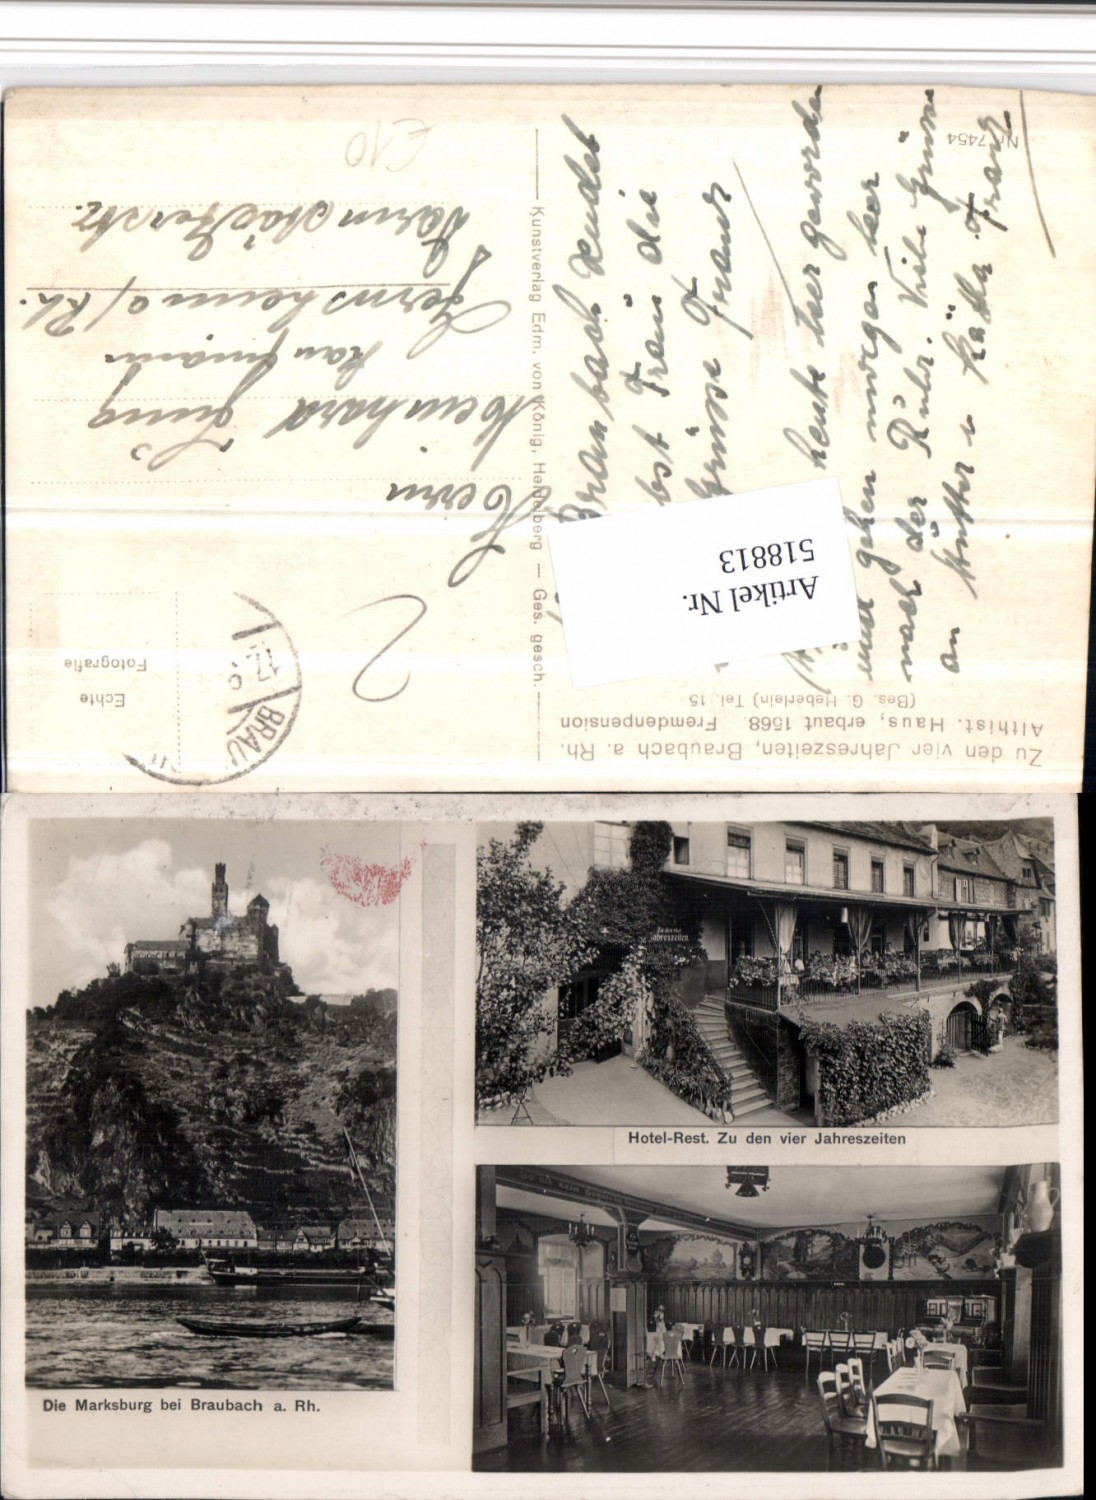 Zu den vier Jahreszeiten, Braubach a. Rh.
Althist. Haus, erbaut 1568. Fremdenpension
(Bes. G. Heberlein) Tel. 15
Echte
Fotografie
BRAU
17.8
2
Artikel Nr.
518813
Kunstverlag Edm. von König, Heidelberg — Ges. gesch.
Nr. 7454
Braubach sendet
die
Grüsse Franz
heute hier geworden
und gehen morgen
nach der Ruhr. Viele Grüsse
an Mutter u Käthe. Franz
Herrn
Meinhard Jung
Kaufmann
Gernsheim a/Rh.
Darmstädterstr.
€10
Die Marksburg bei Braubach a. Rh.
Zu den vier
Jahreszeiten
Hotel-Rest. Zu den vier Jahreszeiten